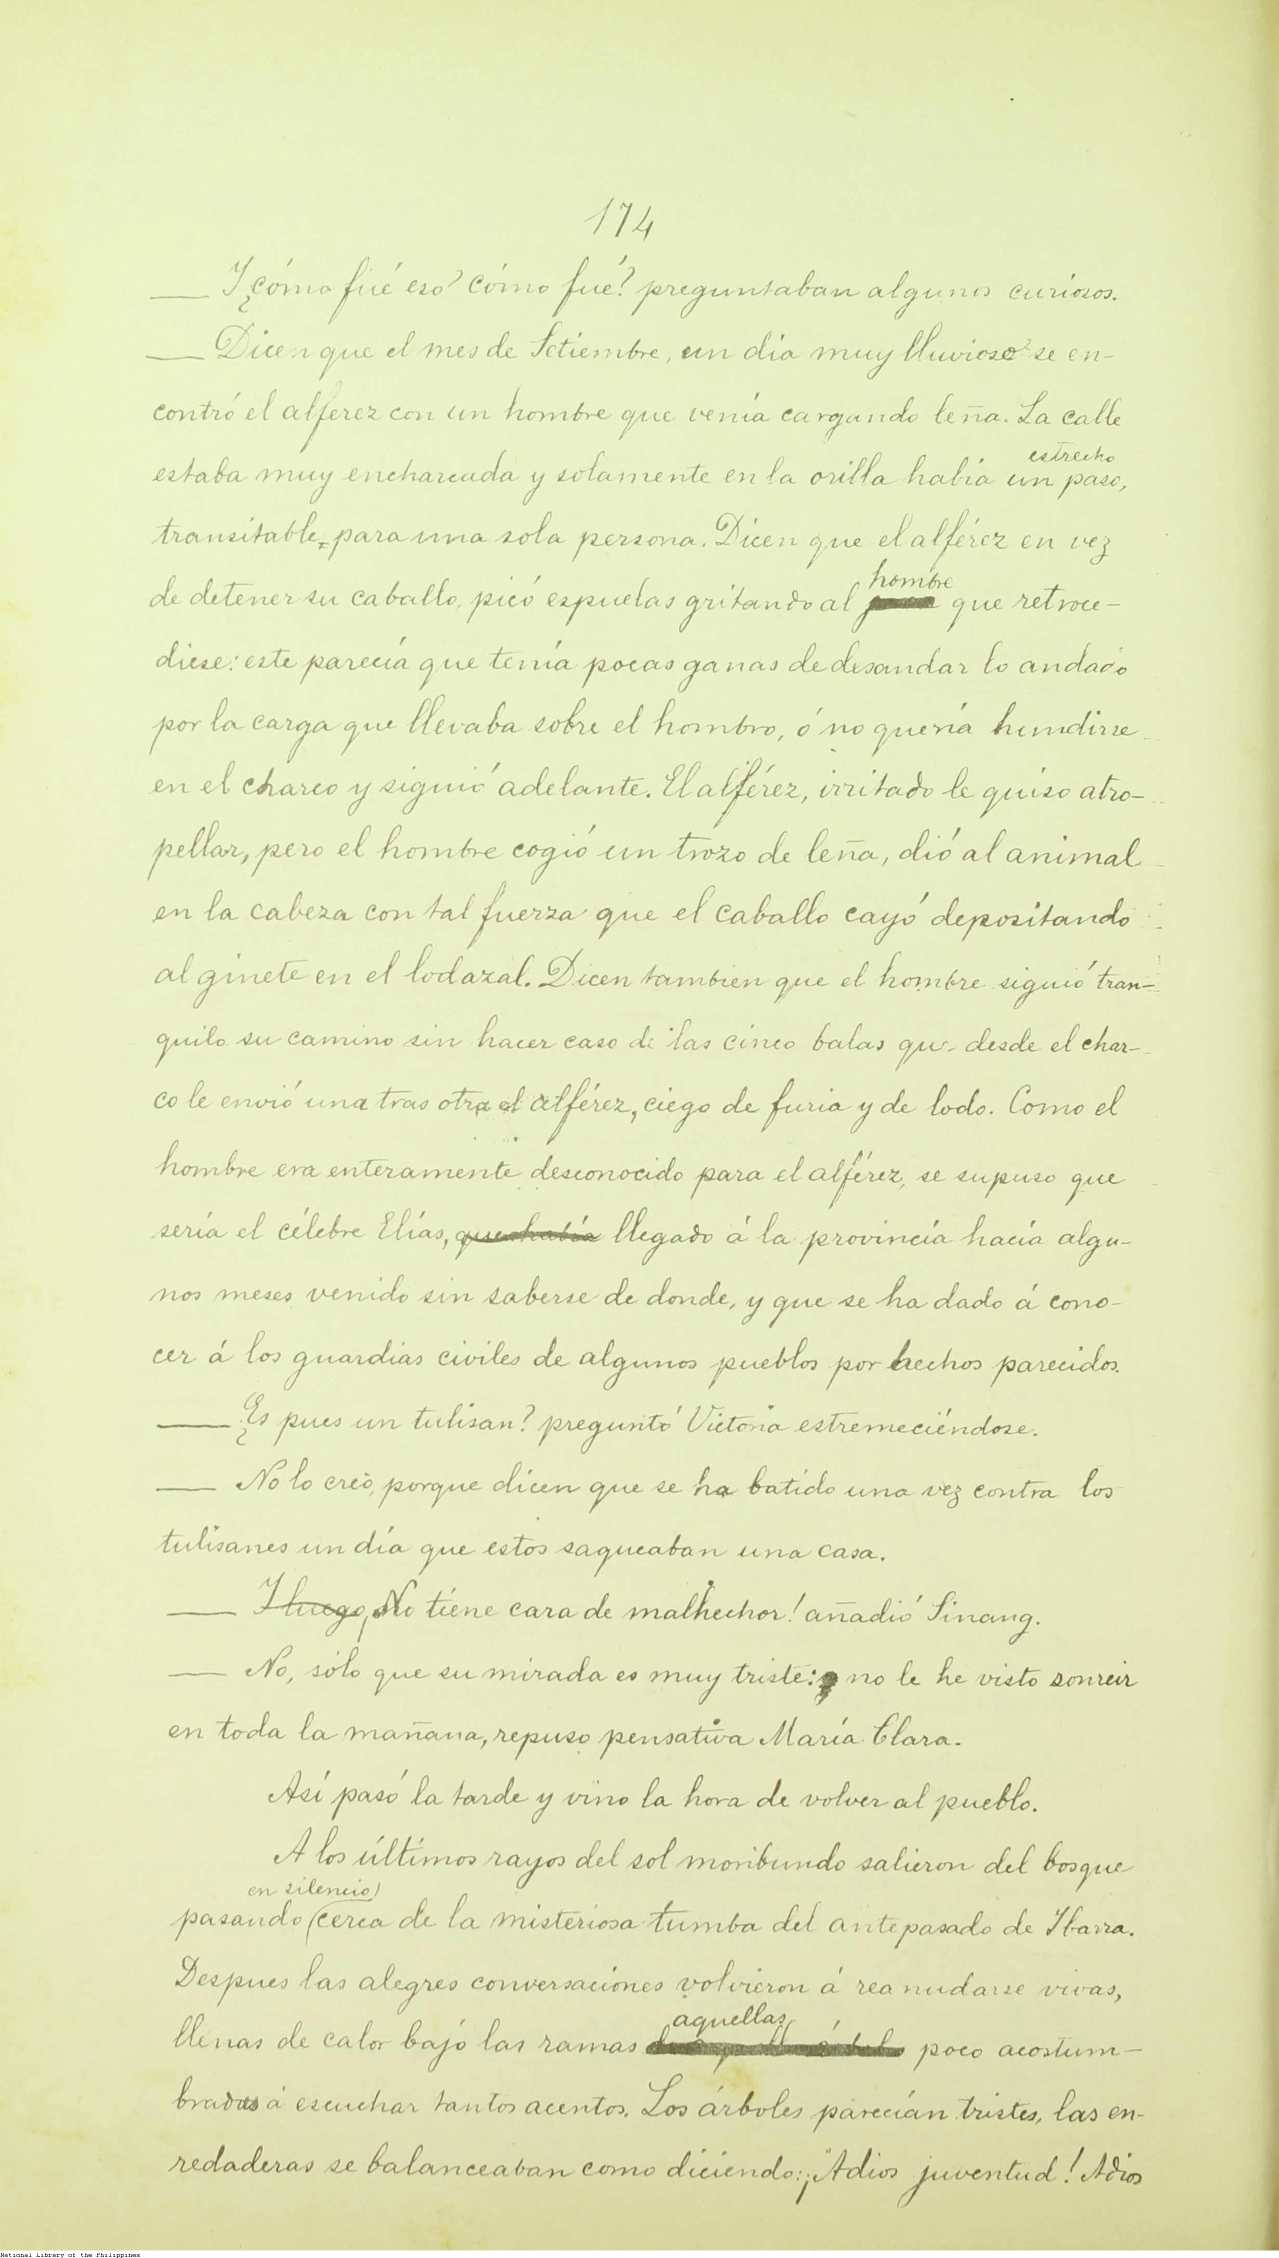 174
— Y ¿cómo fué eso? cómo fué? preguntaban algunos curiosos.
— Dicen que el mes de Setiembre, un día muy lluvioso se en-
contró el alferez con un hombre que venía cargando leña. La calle
estrecho
estaba muy encharcada y solamente en la orilla había un paso,
transitable para una sola persona. Dicen que el alférez en vez
hombre
de detener su caballo, picó espuelas gritando al que retroce-
diese: este parecía que tenía pocas ganas de desandar lo andado
por la carga que llevaba sobre el hombro, ó no quería hundirse
en el charco y siguió adelante. El alférez, irritado le quiso atro-
pellar, pero el hombre cogió un trozo de leña, dió al animal
en la cabeza con tal fuerza que el caballo cayó depositando
al ginete en el lodazal. Dicen tambien que el hombre siguió tran-
quilo su camino sin hacer caso de las cinco balas que desde el char-
co le envió una tras otra el alférez, ciego de furia y de lodo. Como el
hombre era enteramente desconocido para el alférez, se supuso que
sería el célebre Elías, que había llegado á la provincia hacía algu-
nos meses, venido sin saberse de donde, y que se ha dado á cono-
cer á los guardias civiles de algunos pueblos por hechos parecidos.
— ¿Es pues un tulisan? preguntó Victoria estremeciéndose.
— No lo creo, porque dicen que se ha batido una vez contra los
tulisanes un día que estos saqueaban una casa.
— Y luego, No tiene cara de malhechor! añadió Sinang.
— No, sólo que su mirada es muy triste: no le he visto sonreir
en toda la mañana, repuso pensativa María Clara.
Así pasó la tarde y vino la hora de volver al pueblo.
A los últimos rayos del sol moribundo salieron del bosque
en silencio
pasando cerca de la misteriosa tumba del antepasado de Ibarra.
Despues las alegres conversaciones volvieron á reanudarse vivas,
aquellas
llenas de calor bajo las ramas poco acostum-
bradas á escuchar tantos acentos. Los árboles parecían tristes, las en-
redaderas se balanceaban como diciendo: ¡Adios juventud! Adios
National Library of the Philippines